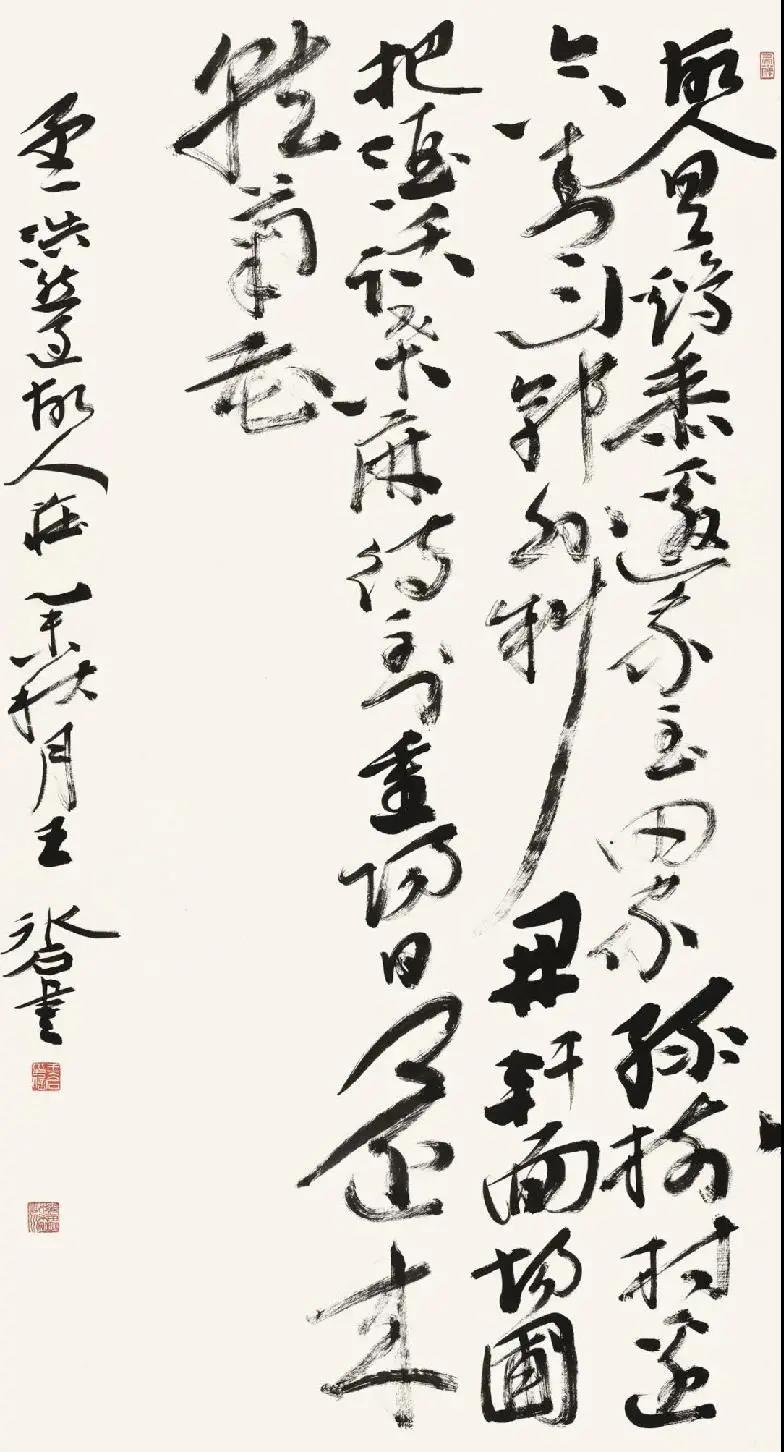 故人具鷄黍邀我至田家綠樹村邊
合青山郭外斜開軒面場圃
把酒話桑麻待到重陽日還來
就菊花
孟浩然過故人莊乙未秋月王書